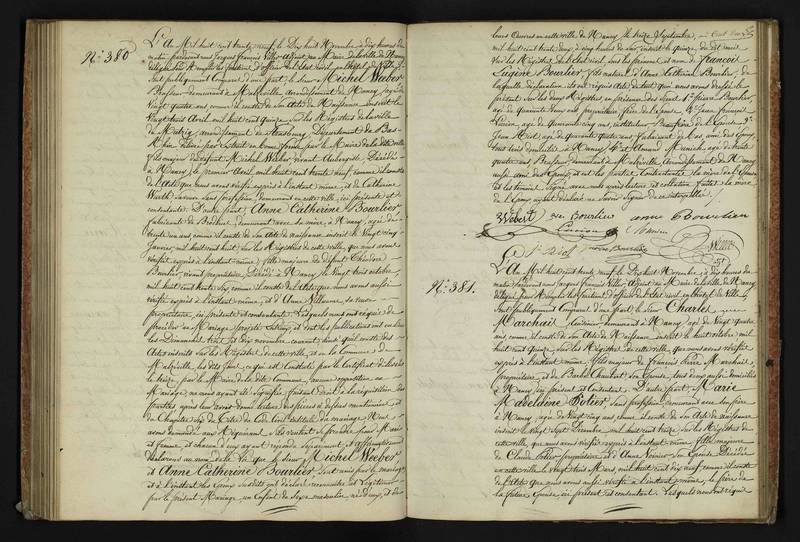 N.º 380
L'An Mil huit cent trente neuf le Dix huit Novembre à dix heures du
matin pardevant nous François Villers adjoint au Maire de la ville de Nancy
délégué pour remplir les fonctions d'officier de l'état civil en l'hôtel de Ville,
Sont publiquement Comparus d'une part le sieur Michel Weber
Brasseur demeurant à Malzéville, arrondissement de Nancy, agé de
Vingt quatre ans comme il conste de son Acte de Naissance inscrit le
Vingt trois Avril mil huit cent quinze, sur les Registres de la ville
de Mutzig arrondissement de Strasbourg Département du Bas-
Rhin
fils majeur de défunt Michel Weber vivant Aubergiste Décédé
à Nancy le premier Avril, mil huit cent trente neuf, comme il conste
de l'Acte que nous avons vérifié exprès à l'instant même, et de Catherine
Wurth sa veuve sans profession, demeurant en cette ville, ici présente et
consentante. D'autre part, Anne Catherine Bourlier
demeurant avec sa mère, à Nancy, agée de
trente un ans comme il conste de son Acte de naissance inscrit le Vingt cinq
Janvier mil huit cent huit, sur les Registres de cette ville, que nous avons
vérifié exprès à l'instant même, fille majeure de défunt Théodore
Bourlier, vivant propriétaire, Décédé à Nancy le Vingt trois octobre,
mil huit cent trente six comme il conste de l'Acte que nous avons aussi
vérifié exprès à l'instant même, et d'Anne Villaume, sa veuve
propriétaire, ici présente et consentante. Lesquels nous ont requis de
procéder au Mariage projeté entre eux, et dont les publications ont eu lieu
les Dimanches trois et dix novembre courant, ainsi qu'il conste des
Actes inscrits sur les Registres de cette ville, et en la Commune de
Malzéville, les dits jours, ce qui est constaté par le Certificat délivré
le treize, par le Maire de la dite Commune, aucune opposition au
Mariage ne nous ayant été signifiée, faisant droit à la réquisition des
parties après leur avoir donné lecture des pièces ci dessus mentionnées et
du Chapitre six du Titre du Code Civil intitulé du mariage Nous
avons demandé aux Requérans s'ils veulent se prendre pour Mari
et femme, et chacun d'eux ayant répondu séparément et affirmativement
déclarons au nom de la Loi que le sieur Michel Weber
et Anne Catherine Bourlier sont unis par le mariage
et à l'instant les Epoux susdits ont déclaré reconnaître et légitimer
par le présent Mariage, un Enfant du sexe masculin né d'eux, et de
leurs Œuvres en cette ville de Nancy le treize Septembre,
mil huit cent trente deux, à cinq heures du soir, inscrit le quinze, du dit mois
sur les Registres de l'état civil, sous les prénoms et nom de François
Eugène Bourlier, fils naturel d'Anne Catherine Bourlier, de
laquelle déclaration ils ont requis Acte du tout qui nous avons dressé le
présent sur les deux Registres en présence des sieurs 1.º Pierre Bourlier,
agé de quarante deux ans propriétaire frère de l'épouse, 2.º Jean François
Lucien, agé de quarante cinq ans, instituteur, Beaufrère de l'épouse 3.º
Jean Riol, agé de quarante quatre ans, fabricant de bas, ami des Epoux,
tous trois domiciliés à Nancy, 4.º et Amand Munich, agé de trente
quatre ans, Brasseur, demeurant à Malzéville, Arrondissement de Nancy
aussi ami des Epoux, et ont les parties Contractantes la mère de l'Epouse
et les témoins Signé avec nous après lecture et collation faites, la mère
de l'Epoux ayant déclaré ne savoir signer de ce interpellée.
Weber ve Bourlier anne C Bourlier
Lucien Munich
J. Riol Bourlier Villers
N.º 381.
L'An Mil huit cent trente neuf le Dix huit Novembre, à dix heures du
matin pardevant nous François Villers, adjoint au Maire de la ville de Nancy
délégué pour remplir les fonctions d'officier de l'état civil en l'hôtel de Ville,
Sont publiquement Comparus d'une part le sieur Charles
Marchal, demeurant à Nancy, agé de Vingt quatre
ans comme il conste de son Acte de Naissance inscrit le huit octobre mil
huit cent quinze, sur les Registres de cette ville, que nous avons vérifié
exprès à l'instant même, fils majeur de François Pierre Marchal,
propriétaire, et de Barbe Chaubert son Epouse, tous deux aussi domiciliés
à Nancy, ici présents et Consentans. D'autre part, Marie
Madeleine Potier sans profession, demeurant avec son père
à Nancy, agée de vingt cinq ans, comme il conste de son Acte de naissance
inscrit le vingt sept Décembre mil huit cent treize sur les Registres de
cette ville, que nous avons vérifié exprès à l'instant même, fille majeure
de Claude Potier propriétaire et d'Anne Voinier son Epouse Décédée
en cette ville le vingt trois Mars, mil huit cent dix neuf comme il conste
de l'Acte que nous avons aussi vérifié à l'instant même, le père de
la future Epouse ici présent et consentant. Lesquels nous ont requis